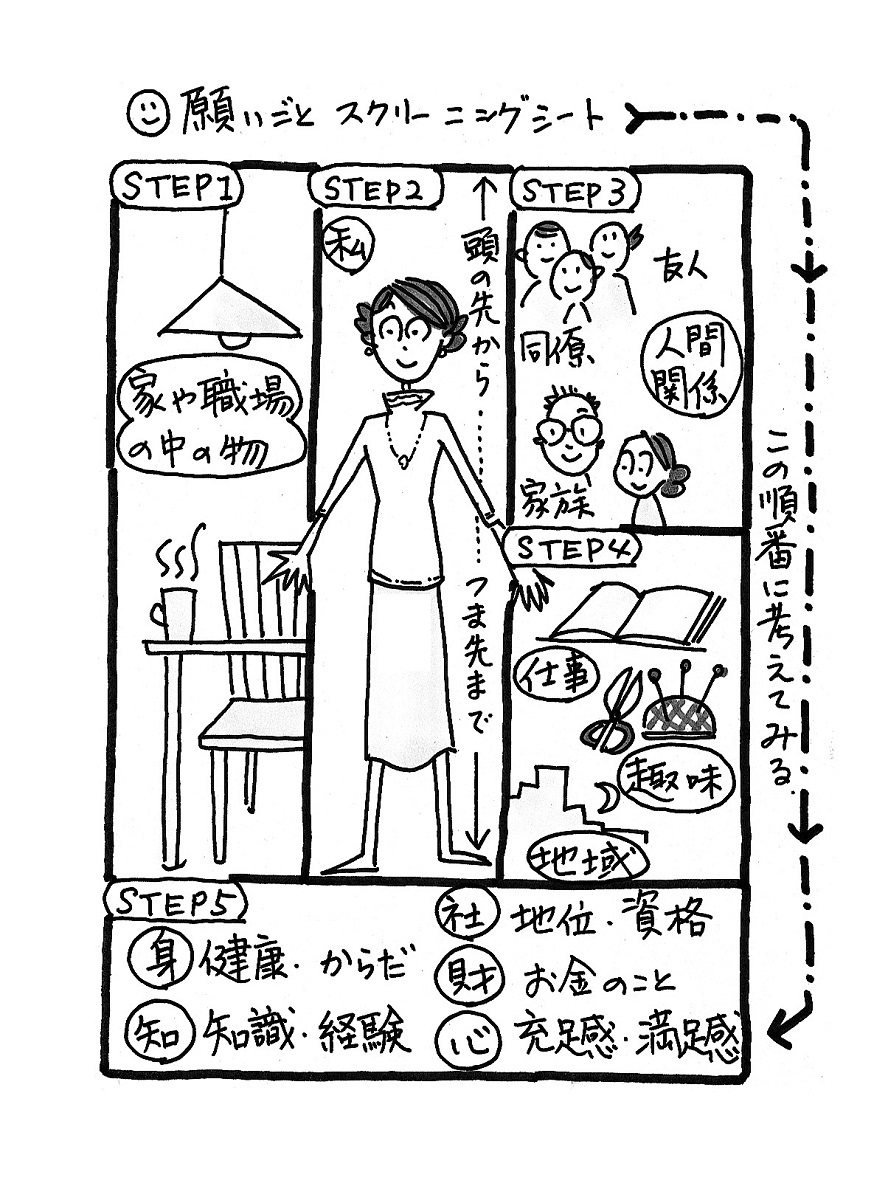 願いごと スクリーニングシート
STEP1
家や職場
の中の物
STEP2
私
頭の先から
つま先まで
STEP3
友人
同僚
人間
関係
家族
STEP4
仕事
趣味
地域
STEP5
身 健康・からだ
知 知識・経験
社 地位・資格
財 お金のこと
心 充足感・満足感
この順番に考えてみる